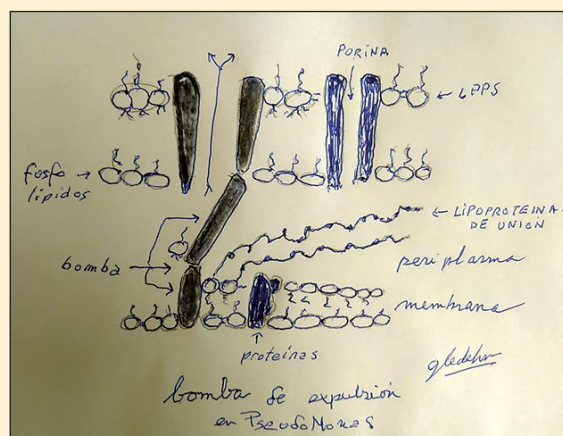 PORINA
LPPS
fosfo
lípidos
LIPOPROTEINA
DE UNIÓN
bomba
periplasma
membrana
proteínas
bomba de expulsión
en PseudoMonas